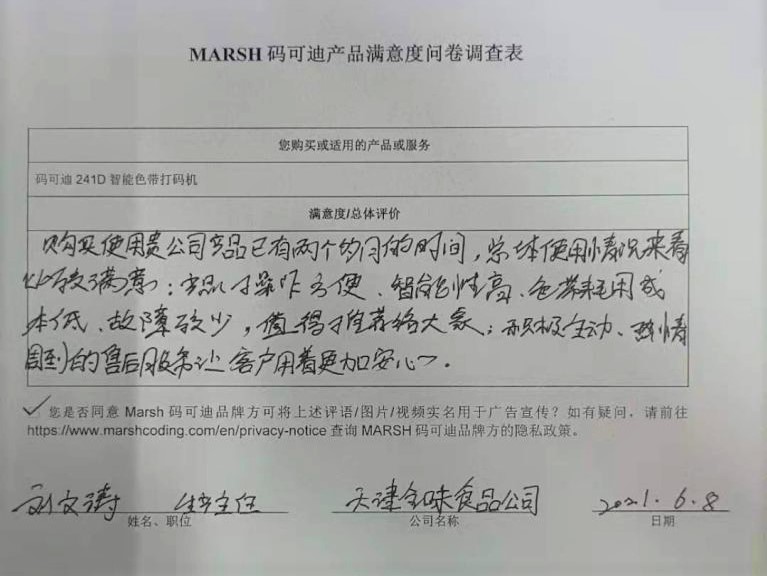 MARSH 码可迪产品满意度问卷调查表
您购买或适用的产品或服务
码可迪 241D 智能色带打码机
满意度/总体评价
购买使用贵公司产品已有两个多月的时间,总体使用情况来看
比较满意:产品操作方便、智能性高、色带耗用成
本低、故障较少,值得推荐给大家;积极主动、热情
周到的售后服务让客户用着更加安心。
✓ 您是否同意 Marsh 码可迪品牌方可将上述评语/图片/视频实名用于广告宣传?如有疑问,请前往
https://www.marshcoding.com/en/privacy-notice 查询 MARSH 码可迪品牌方的隐私政策。
刘文涛 生产主任 天津全味食品公司 2021.6.8
姓名、职位 公司名称 日期